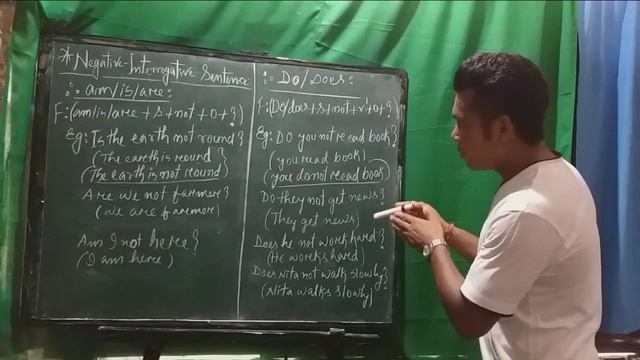 * Negative Interrogative Sentence
∴ am/is/are:
F: (am/is/are + s + not + o + ?)
Eg: Is the earth not round?
(The earth is round)
(The earth is not round)
Are we not farmer?
(we are farmer)
Am I not here?
(I am here)
∴ Do/Does:
F: (Do/does + s + not + v¹ + o + ?)
Eg: Do you not read book?
(you read book)
(you do not read book)
Do they not get news?
(They get news)
Does he not work hard?
(He works hard)
Does Nita not walk slowly?
(Nita walks slowly)